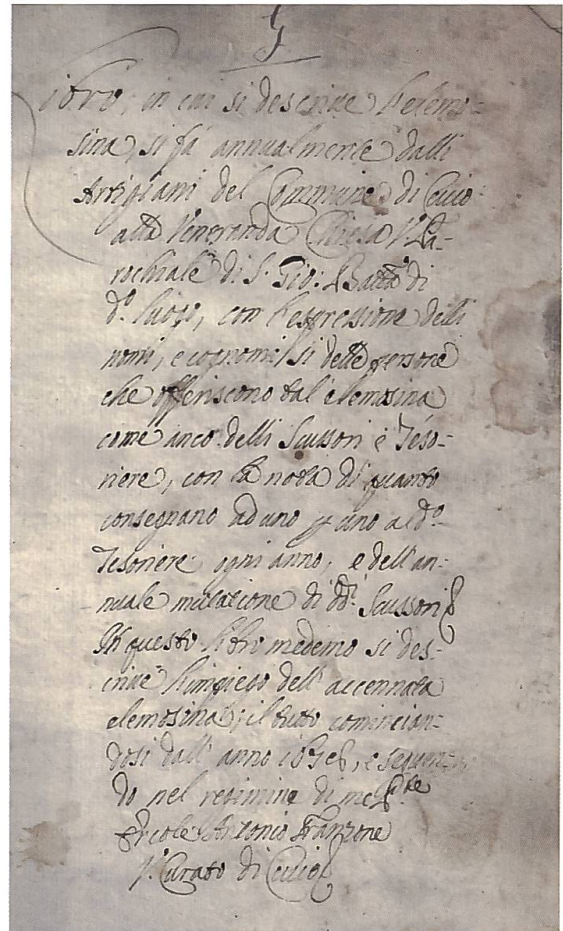 Libro, in cui si descrive l'elemo-
sina, si fà annualmente dalli
Artigiani del Commune di
alla Veneranda Chiesa Pa-
rochiale di S. Gio: Batta di
do. luogo, con l'espressione delli
nomi, e cognomi si delle persone
che offeriscono tal elemosina,
come anco delli Scussori è Teso-
riere, con la nota di quanto
consegnano ad uno p uno al do.
Tesoriere ogni anno, e dell'an-
nuale mutazione di ddi. Scussori
In questo libro medemo si des-
crive l'impiego dell'accennata
elemosina; il tutto comincian-
dosi dall'anno e sequen-
do nel regimine di me
Ercole Antonio Franzone
Curato di